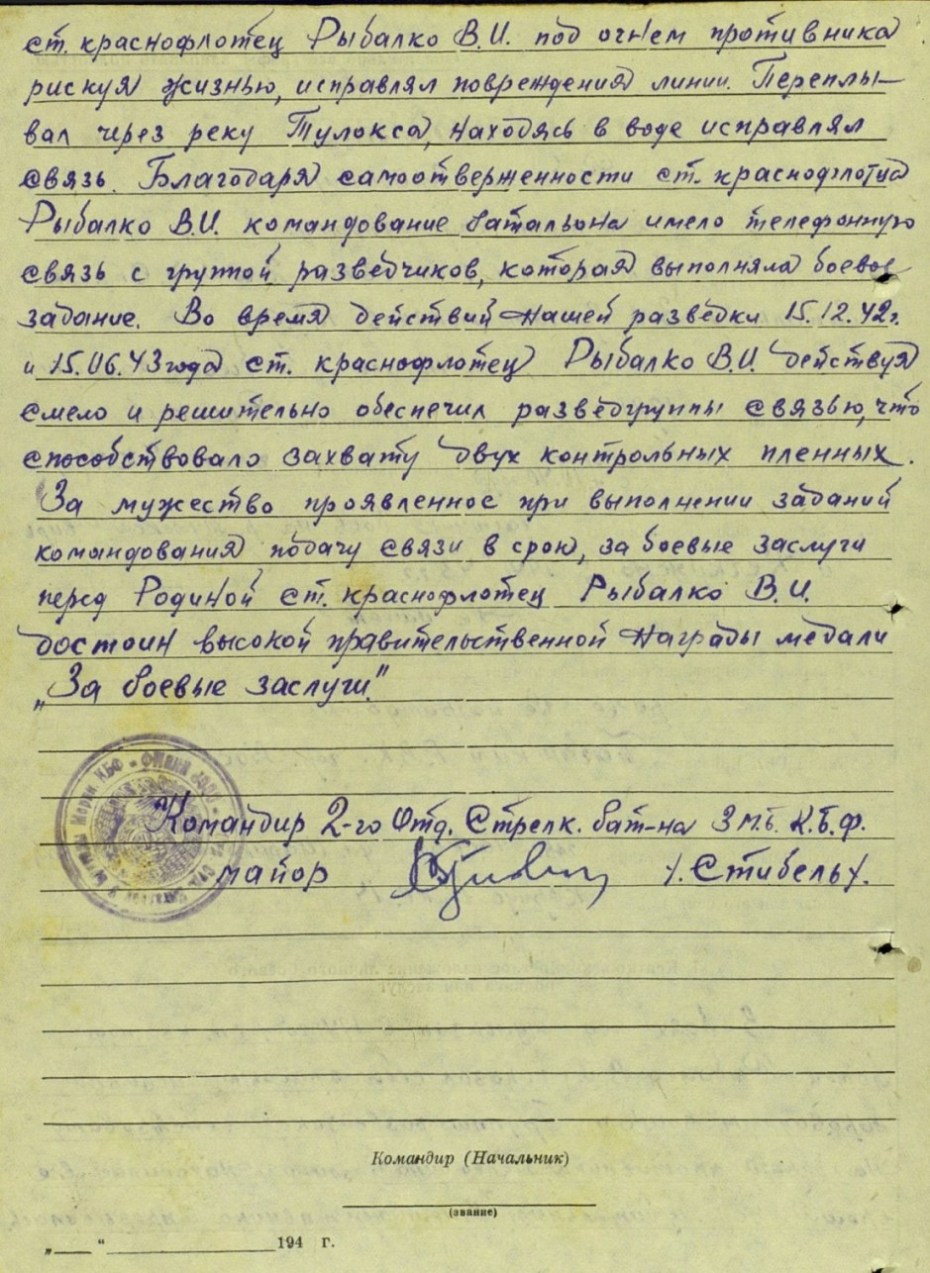 ст. краснофлотец Рыбалко В.И. под огнем противника
рискуя жизнью, исправлял повреждения линии. Переплы-
вал через реку Тулокса, находясь в воде исправлял
связь. Благодаря самоотверженности ст. краснофлотца
Рыбалко В.И. командование батальона имело телефонную
связь с группой разведчиков, которая выполняла боевое
задание. Во время действий нашей разведки 15.12.42г.
и 15.06.43 года ст. краснофлотец Рыбалко В.И. действуя
смело и решительно обеспечил разведгруппы связью, что
способствовало захвату двух контрольных пленных.
За мужество проявленное при выполнении заданий
командования подачу связи в срок, за боевые заслуги
перед Родиной ст. краснофлотец Рыбалко В.И.
достоин высокой правительственной награды медали
„За боевые заслуги"
Командир 2-го Отд. Стрелк. бат-на 3 м.б. К.Б.Ф.
майор /. Стибель /.
Командир (Начальник)
(звание)
„ “ 194 г.